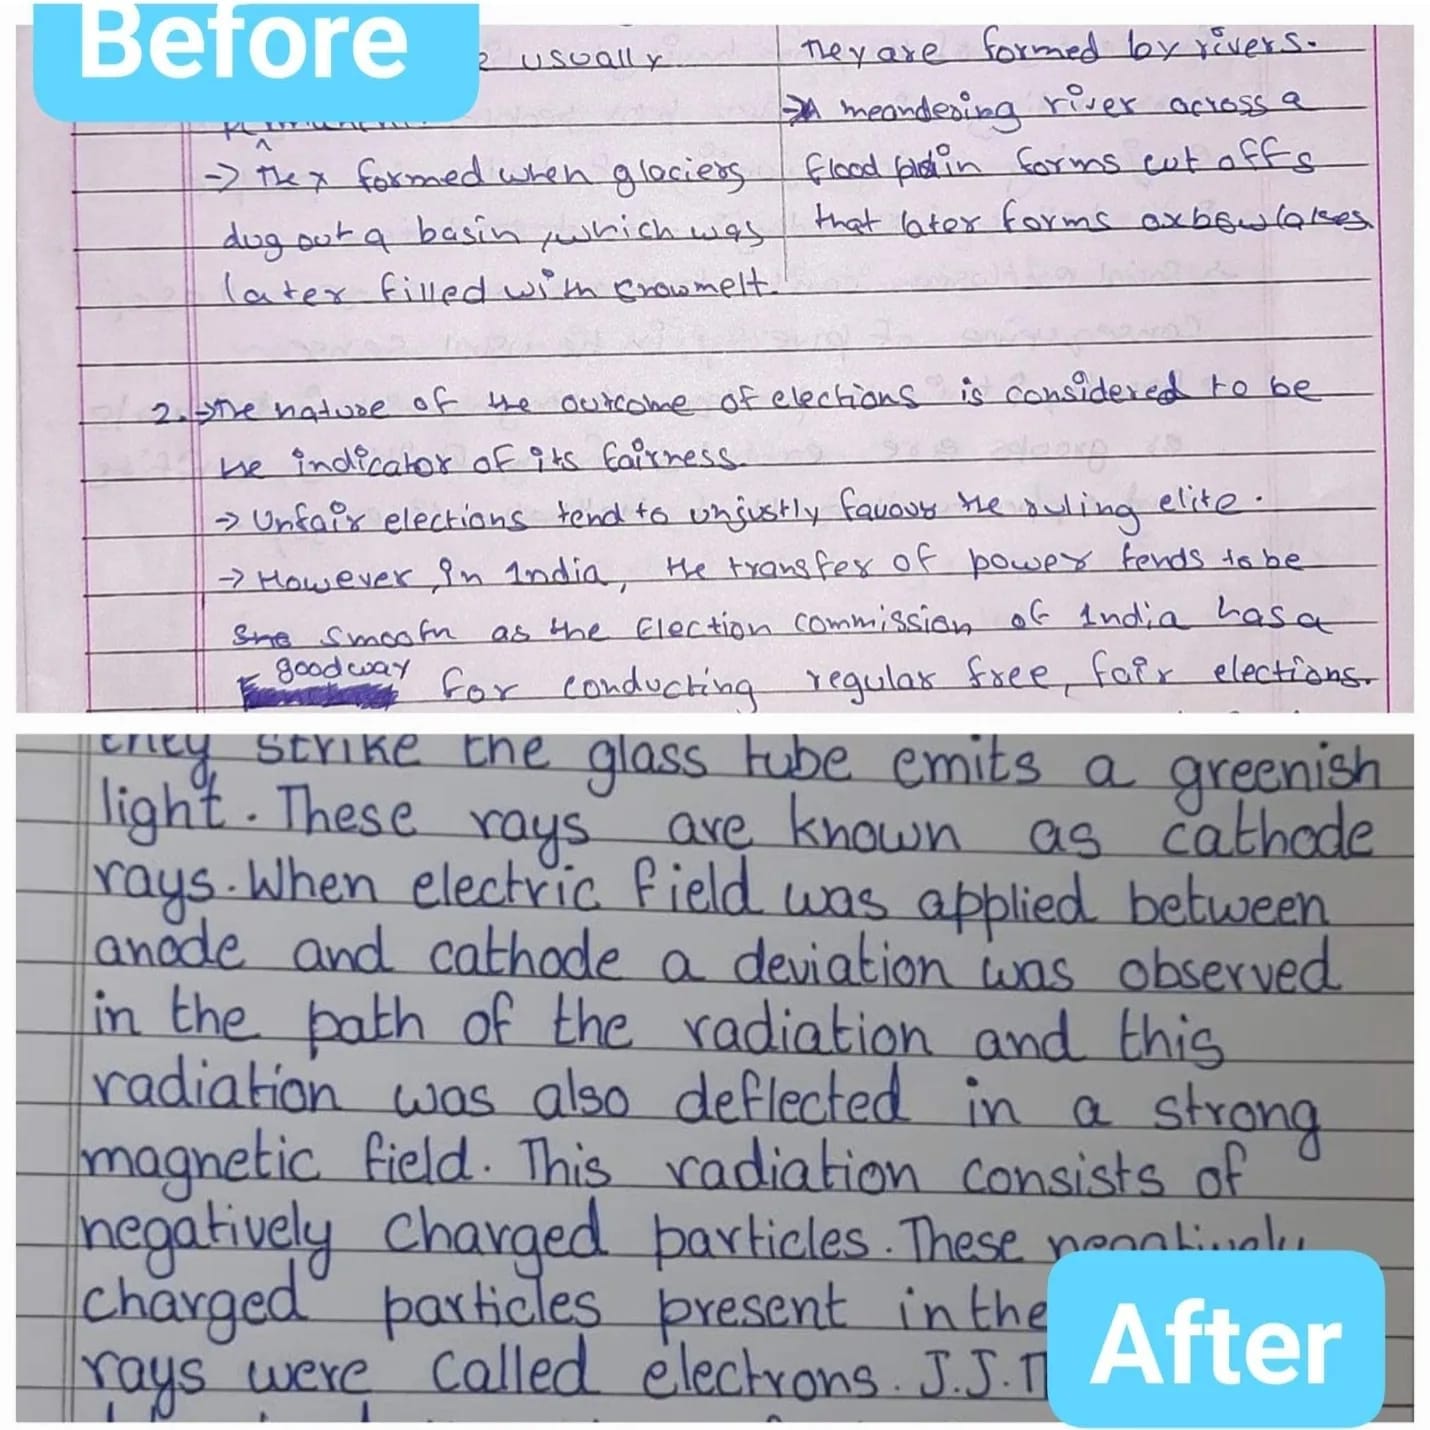 Before
usually
They are formed by rivers.
→A meandering river across a
→ They formed when glaciers
flood plain forms cut offs
dug out a basin, which was
that later forms oxbow lakes
later filled with snowmelt.
2.→The nature of the outcome of elections is considered to be
he indicator of its fairness.
→ Unfair elections tend to unjustly favour the ruling elite.
→ However, in India, the transfer of power tends to be
smooth as the Election commission of India has a
good way for conducting regular free, fair elections.
they strike the glass tube emits a greenish
light. These rays are known as cathode
rays. When electric field was applied between
anode and cathode a deviation was observed
in the path of the radiation and this
radiation was also deflected in a strong
magnetic field. This radiation consists of
negatively charged particles. These negatively
charged particles present in the
rays were called electrons. J.J.
After